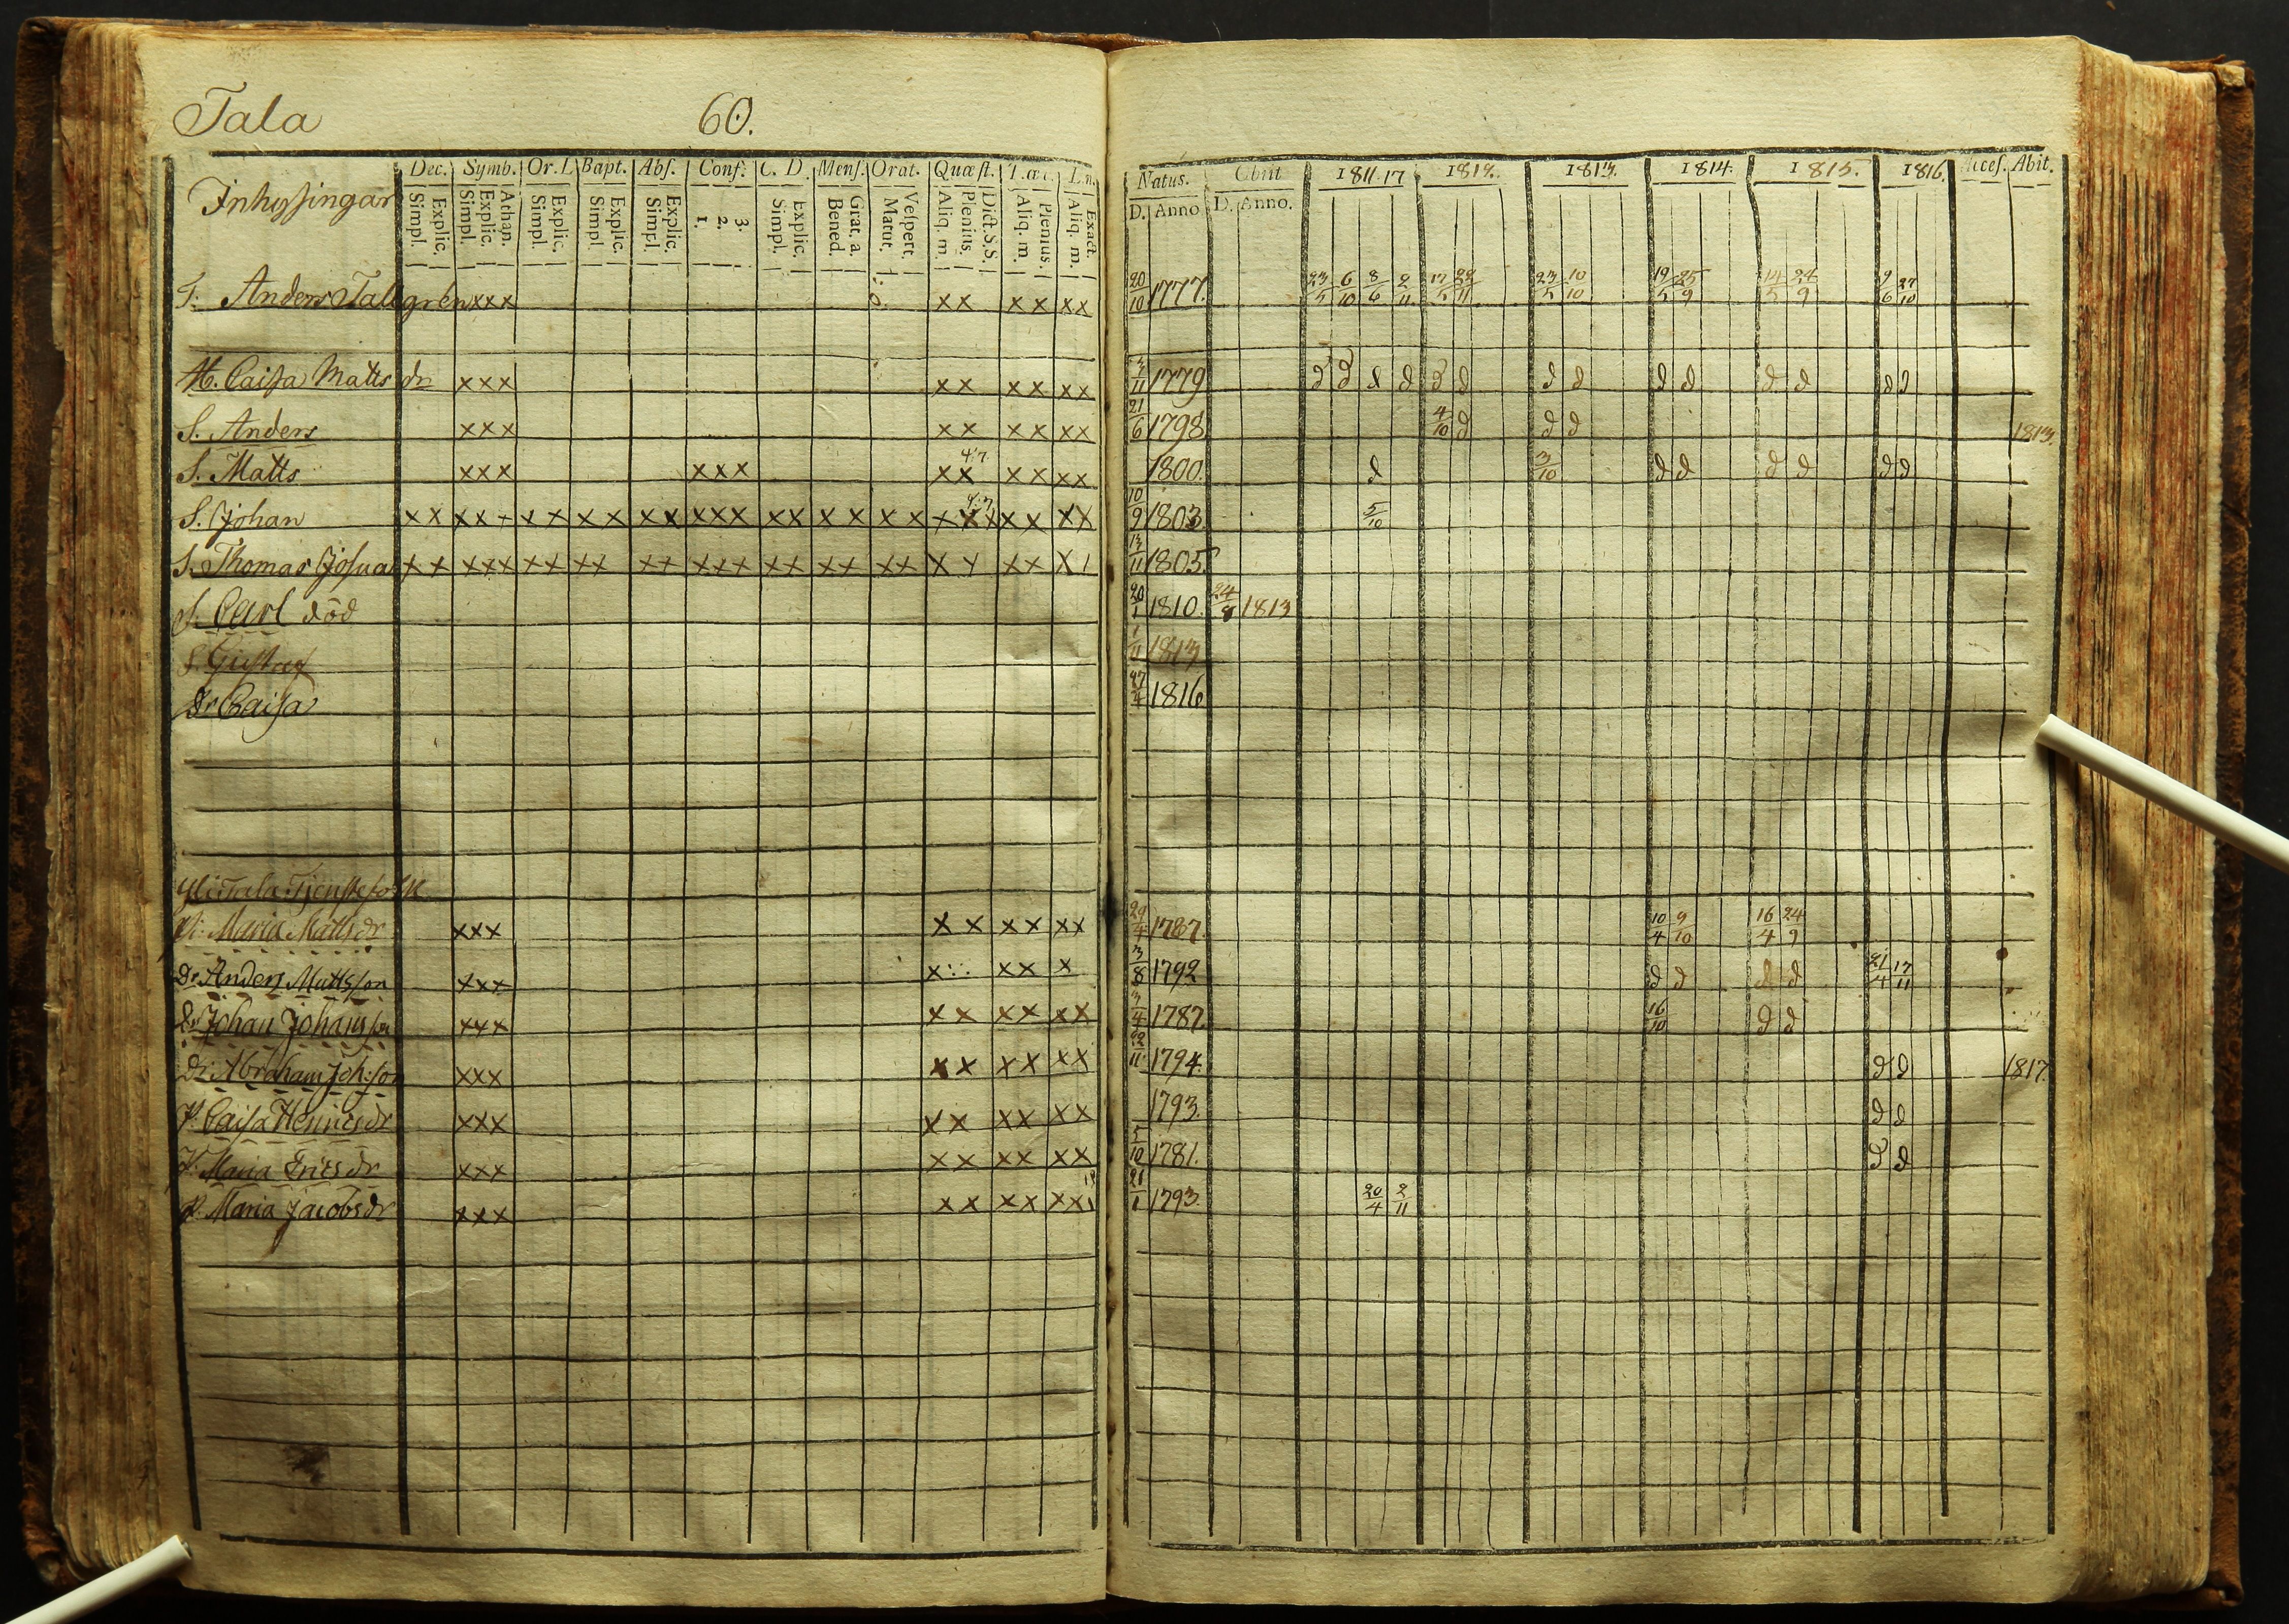 Tala 60.
Inhysingar
Dec. Symb. Or. D. Bapt. Abs. Conf. C. D. Mens. Orat. Quæst. T. æc. L. n.
Explic. Simpl. Athan. Explic. Simpl. Explic. Simpl. Explic. Simpl. Explic. Simpl. 3. 2. 1. Explic. Simpl. Grat. a. Bened. Vespert. Matut. Dict. S. S. Plenius. Aliq. m. Plenius. Aliq. m. Exact. Aliq. m.
Natus. Obiit 1811.17 1812. 1813. 1814. 1815. 1816. Acces. Abit.
D. Anno D. Anno.
I: Anders Tallgren xxx xx xx xx 20/10 1777. 23/5 6/10 8/6 2/11 17/5 22/11 23/5 10/10 19/5 25/9 14/5 24/9 9/6 27/10
H. Caisa Matts dr xxx xx xx xx 3/11 1779 d d d d d d d d d d d d d d
S. Anders xxx xx xx xx 21/6 1798 4/10 d d d 1813.
S. Matts xxx xxx xx xx xx 1800. d 3/10 d d d d d d
S. Johan xx xxx xx xx xx xxx xx xx xx xxx xx xx 10/9 1803. 5/10
S. Thomas Josua xx xxx xx xx xx xxx xx xx xx xx xx 13/11 1805.
S. Carl död 20/1 1810. 24/8 1813
S. Gustaf 1/11 1813
Dr Caisa 27/4 1816
Yli Tala Tjenstefolk
P: Maria Matts dr xxx xx xx xx 29/4 1787. 10/4 9/10 16/4 24/9
Dr. Anders Mattsson xxx x xx x 3/8 1792 d d d d 21/4 17/11
Dr Johan Johansson xxx xx xx xx 3/4 1787. 16/10 d d
Dr. Abraham Joh:son xxx xx xx xx 22/11 1794. d d 1817.
P. Caisa Henrics dr xxx xx xx xx 1793. d d
P. Maria Erics dr xxx xx xx xx 5/10 1781. d d
P. Maria Jacobs dr xxx xx xx xx 21/1 1793. 20/4 2/11